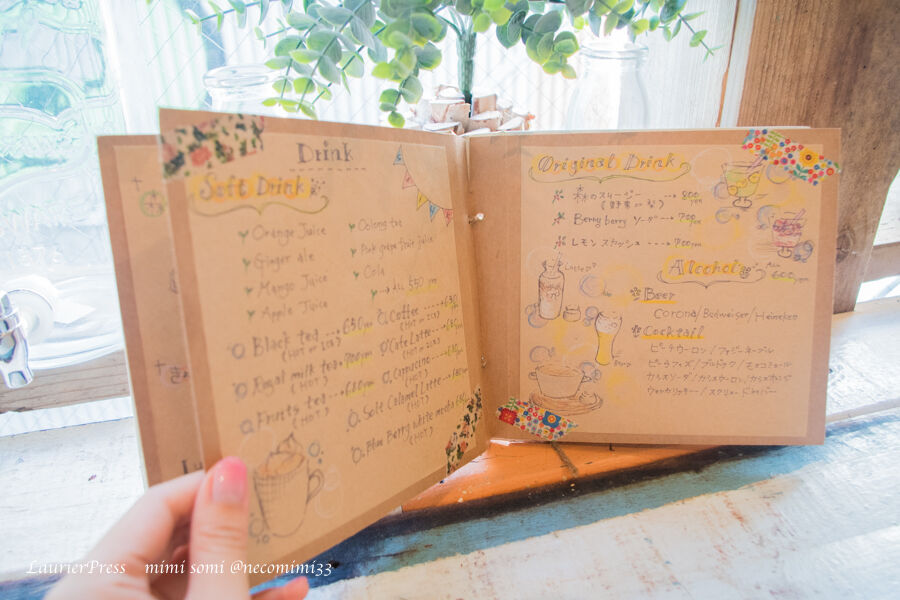 Drink
Soft Drink
Orange Juice
Ginger ale
Mango Juice
Apple Juice
Oolong tea
Pink grape fruit Juice
Cola
→ ALL 550 yen
Black tea → 630 yen
(HOT or ICE)
Royal milk tea → 700 yen
(HOT)
Fruits tea → 680 yen
(HOT)
Coffee → 630 yen
(HOT or ICE)
Cafe Latte
(HOT or ICE)
Cappucino
(HOT)
Salt Caramel Latte
(HOT)
Blue Berry white mocha
(HOT)
Original Drink
森のスムージー → 800 yen
Berry berry ソーダ → 700 yen
レモンスカッシュ → 700 yen
Latte
Beer
Alcohol ALL 600 yen
Beer
Corona/Budweiser/Heineken
Cocktail
ピーチウーロン/ファジーネーブル
ピーチフィズ/ブルドック/モスコミュール
カシスソーダ/カシスウーロン/カシスオレンジ
LaurierPress mimi somi @necomimi33